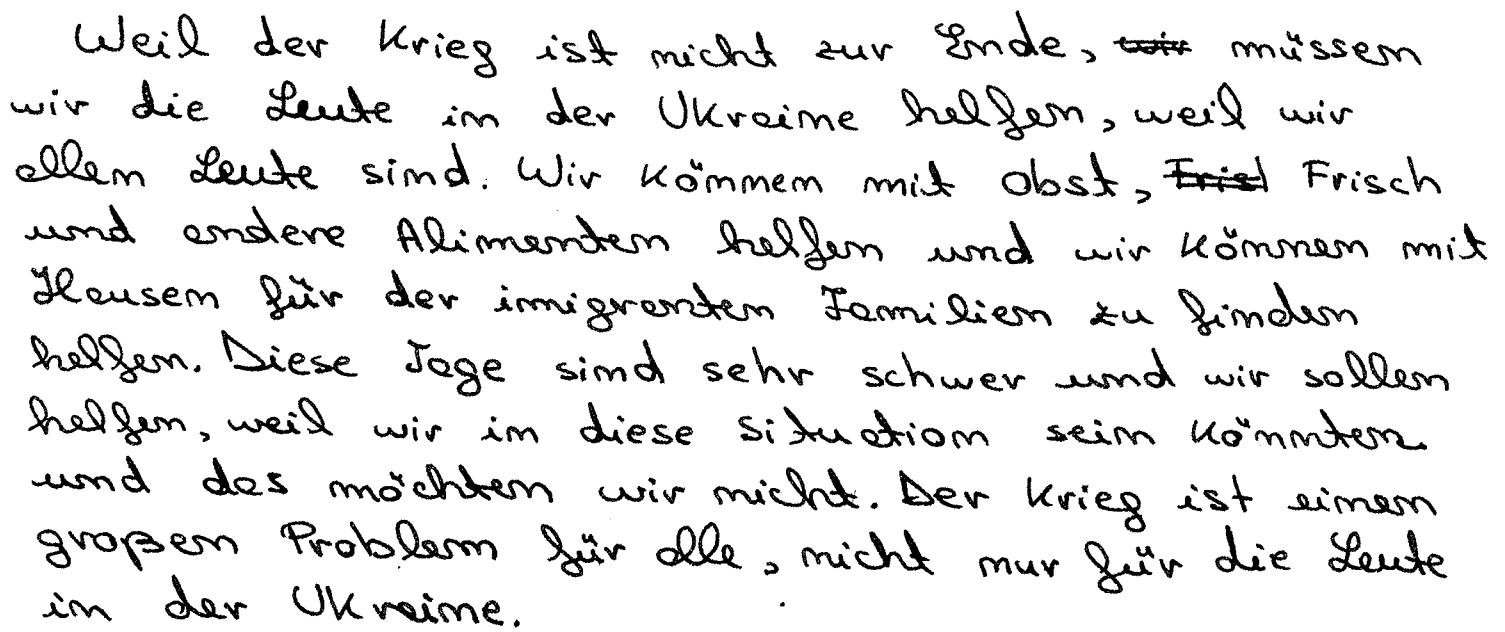 Weil der Krieg ist nicht zur Ende, wir müssen
wir die Leute in der Ukraine helfen, weil wir
allen Leute sind. Wir können mit Obst, Frisch
und andere Alimenten helfen und wir können mit
Hausen für der imigranten Familien zu finden
helfen. Diese Tage sind sehr schwer und wir sollen
helfen, weil wir in diese Situation sein könnten
und das möchten wir nicht. Der Krieg ist einen
großen Problem für alle, nicht nur für die Leute
in der Ukraine.